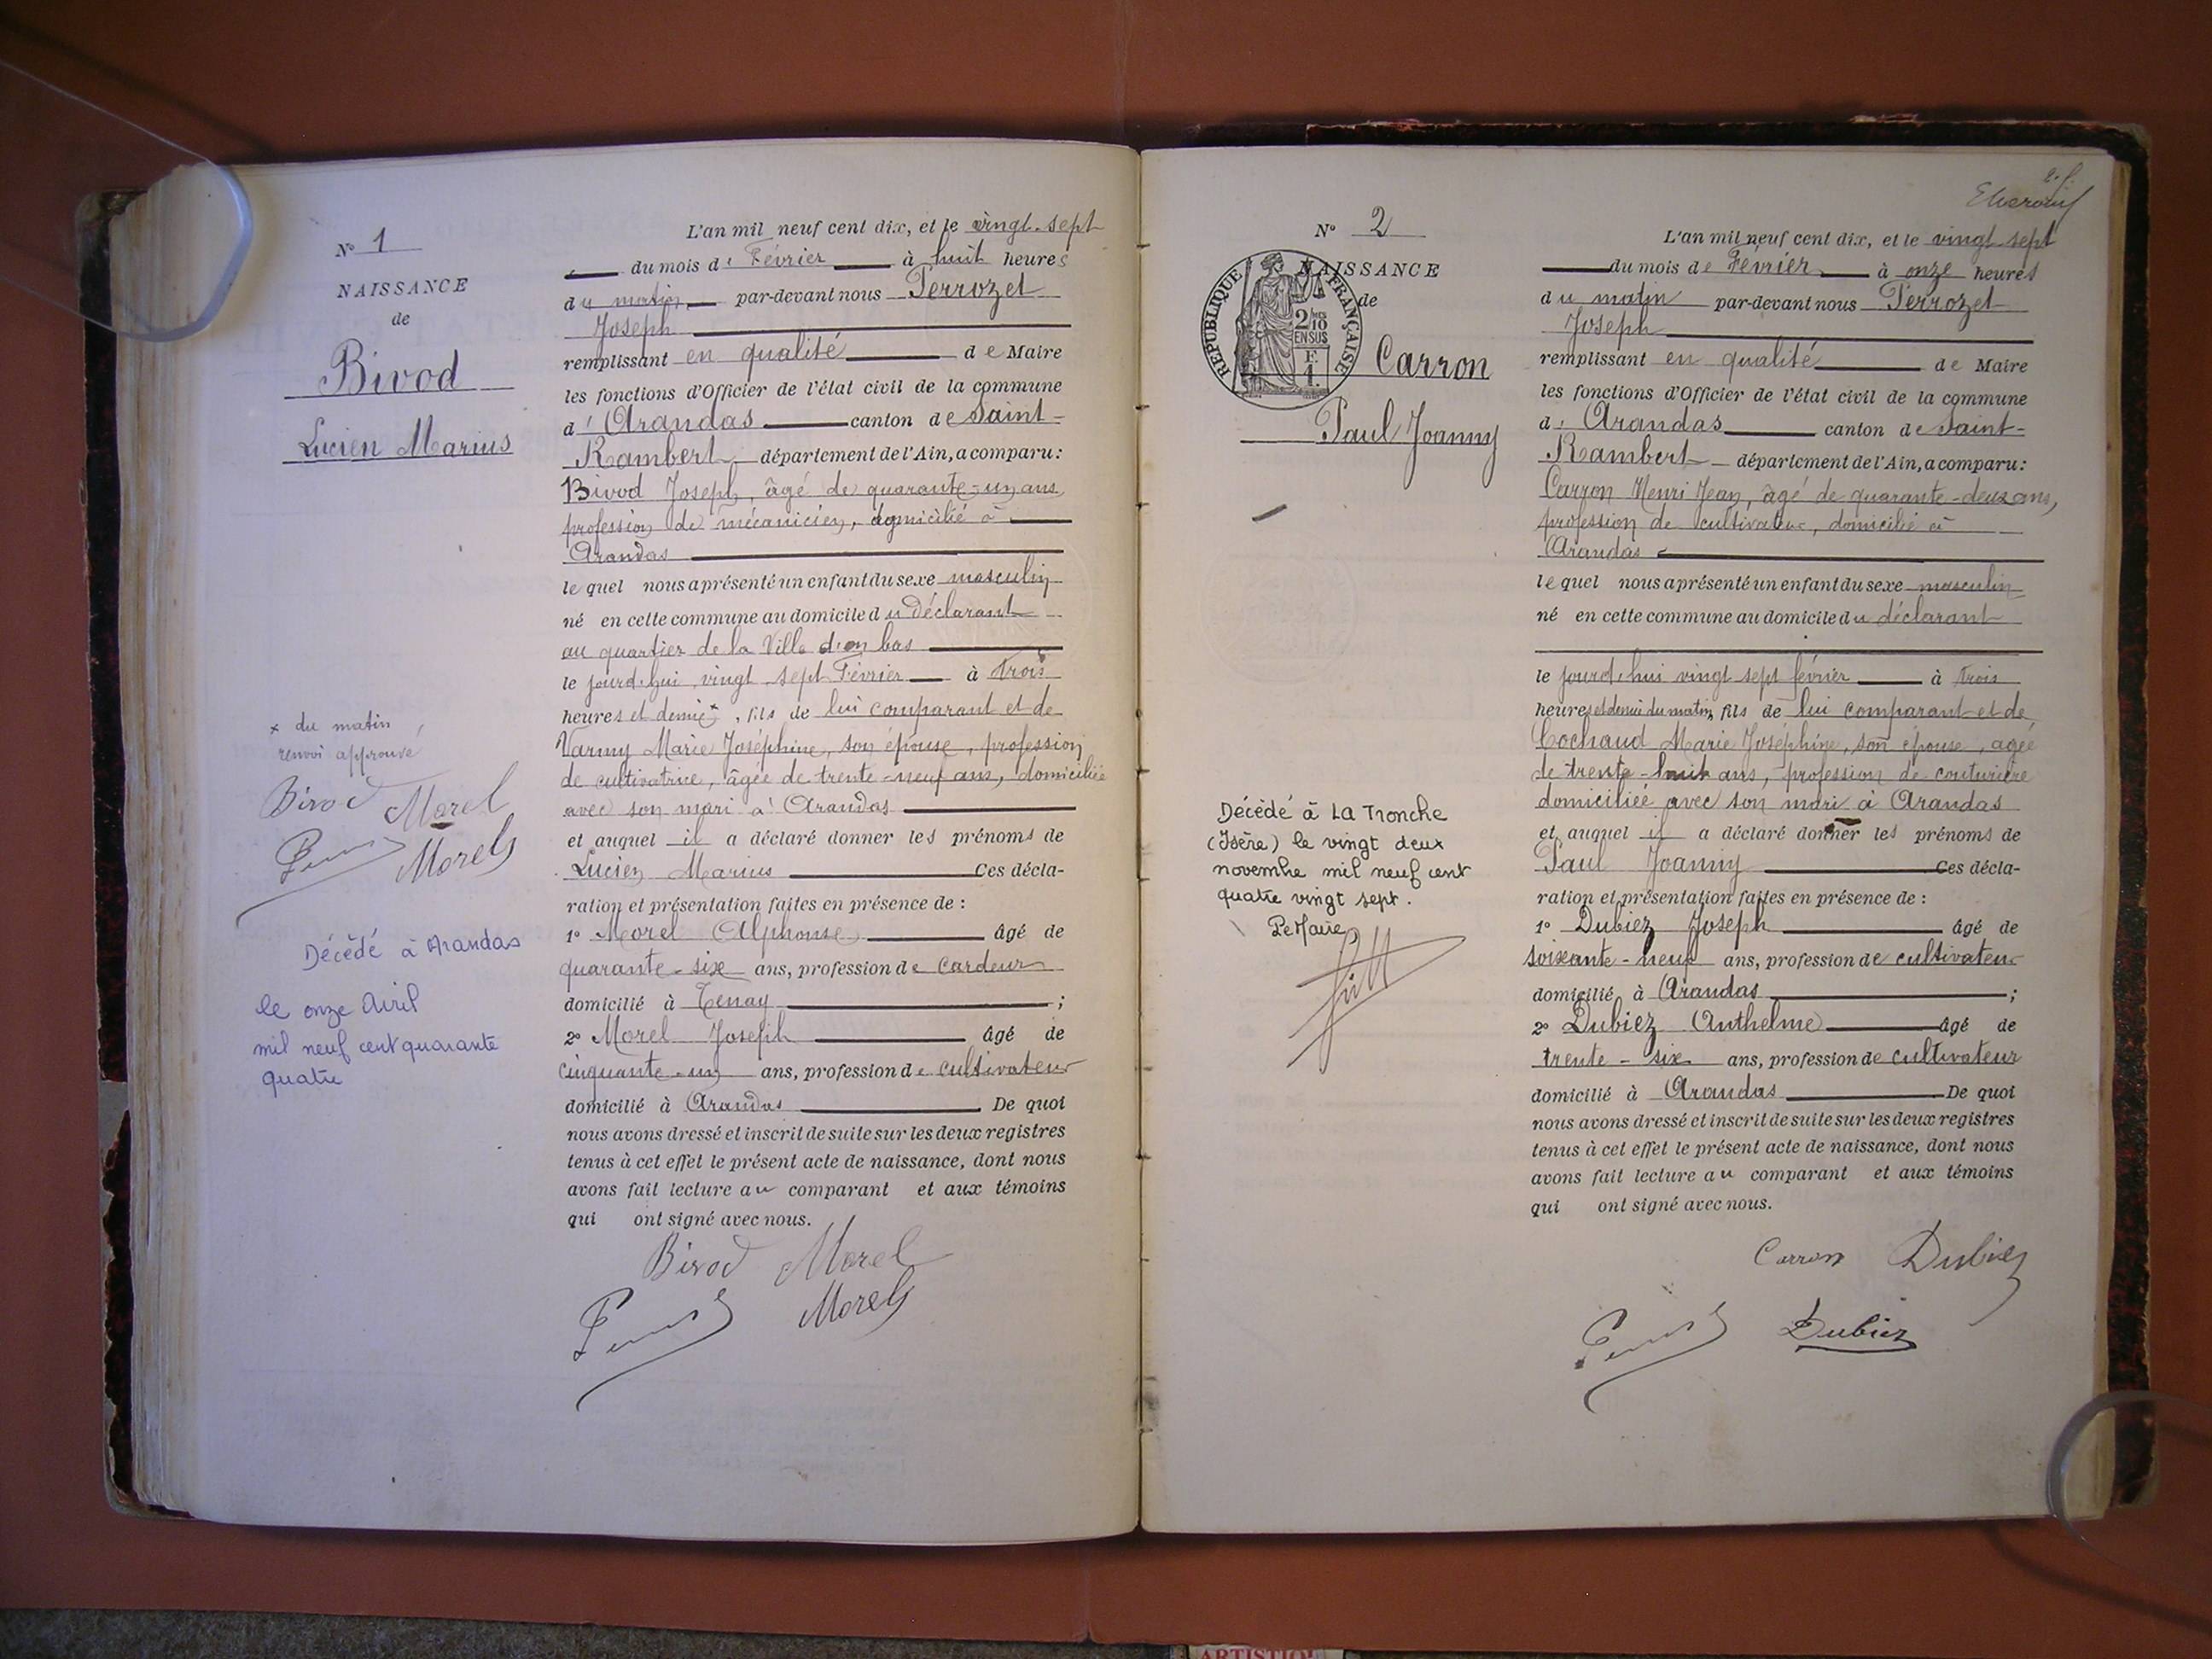 N° 1
NAISSANCE
de
Bivod
Lucien Marius
L'an mil neuf cent dix, et le vingt-sept
du mois de Février à huit heures
du matin par-devant nous Perrozet
Joseph
remplissant en qualité de Maire
les fonctions d'Officier de l'état civil de la commune
d'Arandas canton de Saint-
Rambert département de l'Ain, a comparu:
Bivod Joseph, âgé de quarante-un ans,
profession de mécanicien, domicilié à
Arandas
lequel nous a présenté un enfant du sexe masculin
né en cette commune au domicile du déclarant
au quartier de la Ville d'en bas
le jourd'hui vingt sept Février à trois
heures et demie x, fils de lui comparant et de
Marie Joséphine, son épouse, profession
de cultivatrice, âgée de trente-neuf ans, domiciliée
avec son mari à Arandas
et auquel il a déclaré donner les prénoms de
Lucien Marius Ces décla-
ration et présentation faites en présence de :
1° Morel Alphonse âgé de
quarante-six ans, profession de Cardeur
domicilié à Tenay ;
2° Morel Joseph âgé de
cinquante-un ans, profession de cultivateur
domicilié à Arandas De quoi
nous avons dressé et inscrit de suite sur les deux registres
tenus à cet effet le présent acte de naissance, dont nous
avons fait lecture au comparant et aux témoins
qui ont signé avec nous.
Bivod Morel
Morel
x du matin
renvoi approuvé
Bivod Morel
Morel
Décédé à Arandas
le onze Avril
mil neuf cent quarante
quatre
N° 2
NAISSANCE
de
REPUBLIQUE FRANÇAISE
2/10
EN SUS
F.
1.
Carron
Paul Joanny
L'an mil neuf cent dix, et le vingt-sept
du mois de Février à onze heures
du matin par-devant nous Perrozet
Joseph
remplissant en qualité de Maire
les fonctions d'Officier de l'état civil de la commune
d'Arandas canton de Saint-
Rambert département de l'Ain, a comparu:
Carron Henri Jean, âgé de quarante-deux ans,
profession de cultivateur, domicilié à
Arandas
lequel nous a présenté un enfant du sexe masculin
né en cette commune au domicile du déclarant
le jourd'hui vingt sept février à trois
heures et demie du matin, fils de lui comparant et de
Cochaud Marie Joséphine, son épouse, agée
de trente-huit ans, profession de couturière
domiciliée avec son mari à Arandas
et auquel il a déclaré donner les prénoms de
Paul Joanny Ces décla-
ration et présentation faites en présence de :
1° Dubiez Joseph âgé de
soixante-neuf ans, profession de cultivateur
domicilié à Arandas ;
2° Dubiez Anthelme âgé de
trente-six ans, profession de cultivateur
domicilié à Arandas De quoi
nous avons dressé et inscrit de suite sur les deux registres
tenus à cet effet le présent acte de naissance, dont nous
avons fait lecture au comparant et aux témoins
qui ont signé avec nous.
Carron Dubiez
Dubiez
Décédé à La Tronche
(Isère) le vingt deux
novembre mil neuf cent
quatre vingt sept.
Le Maire